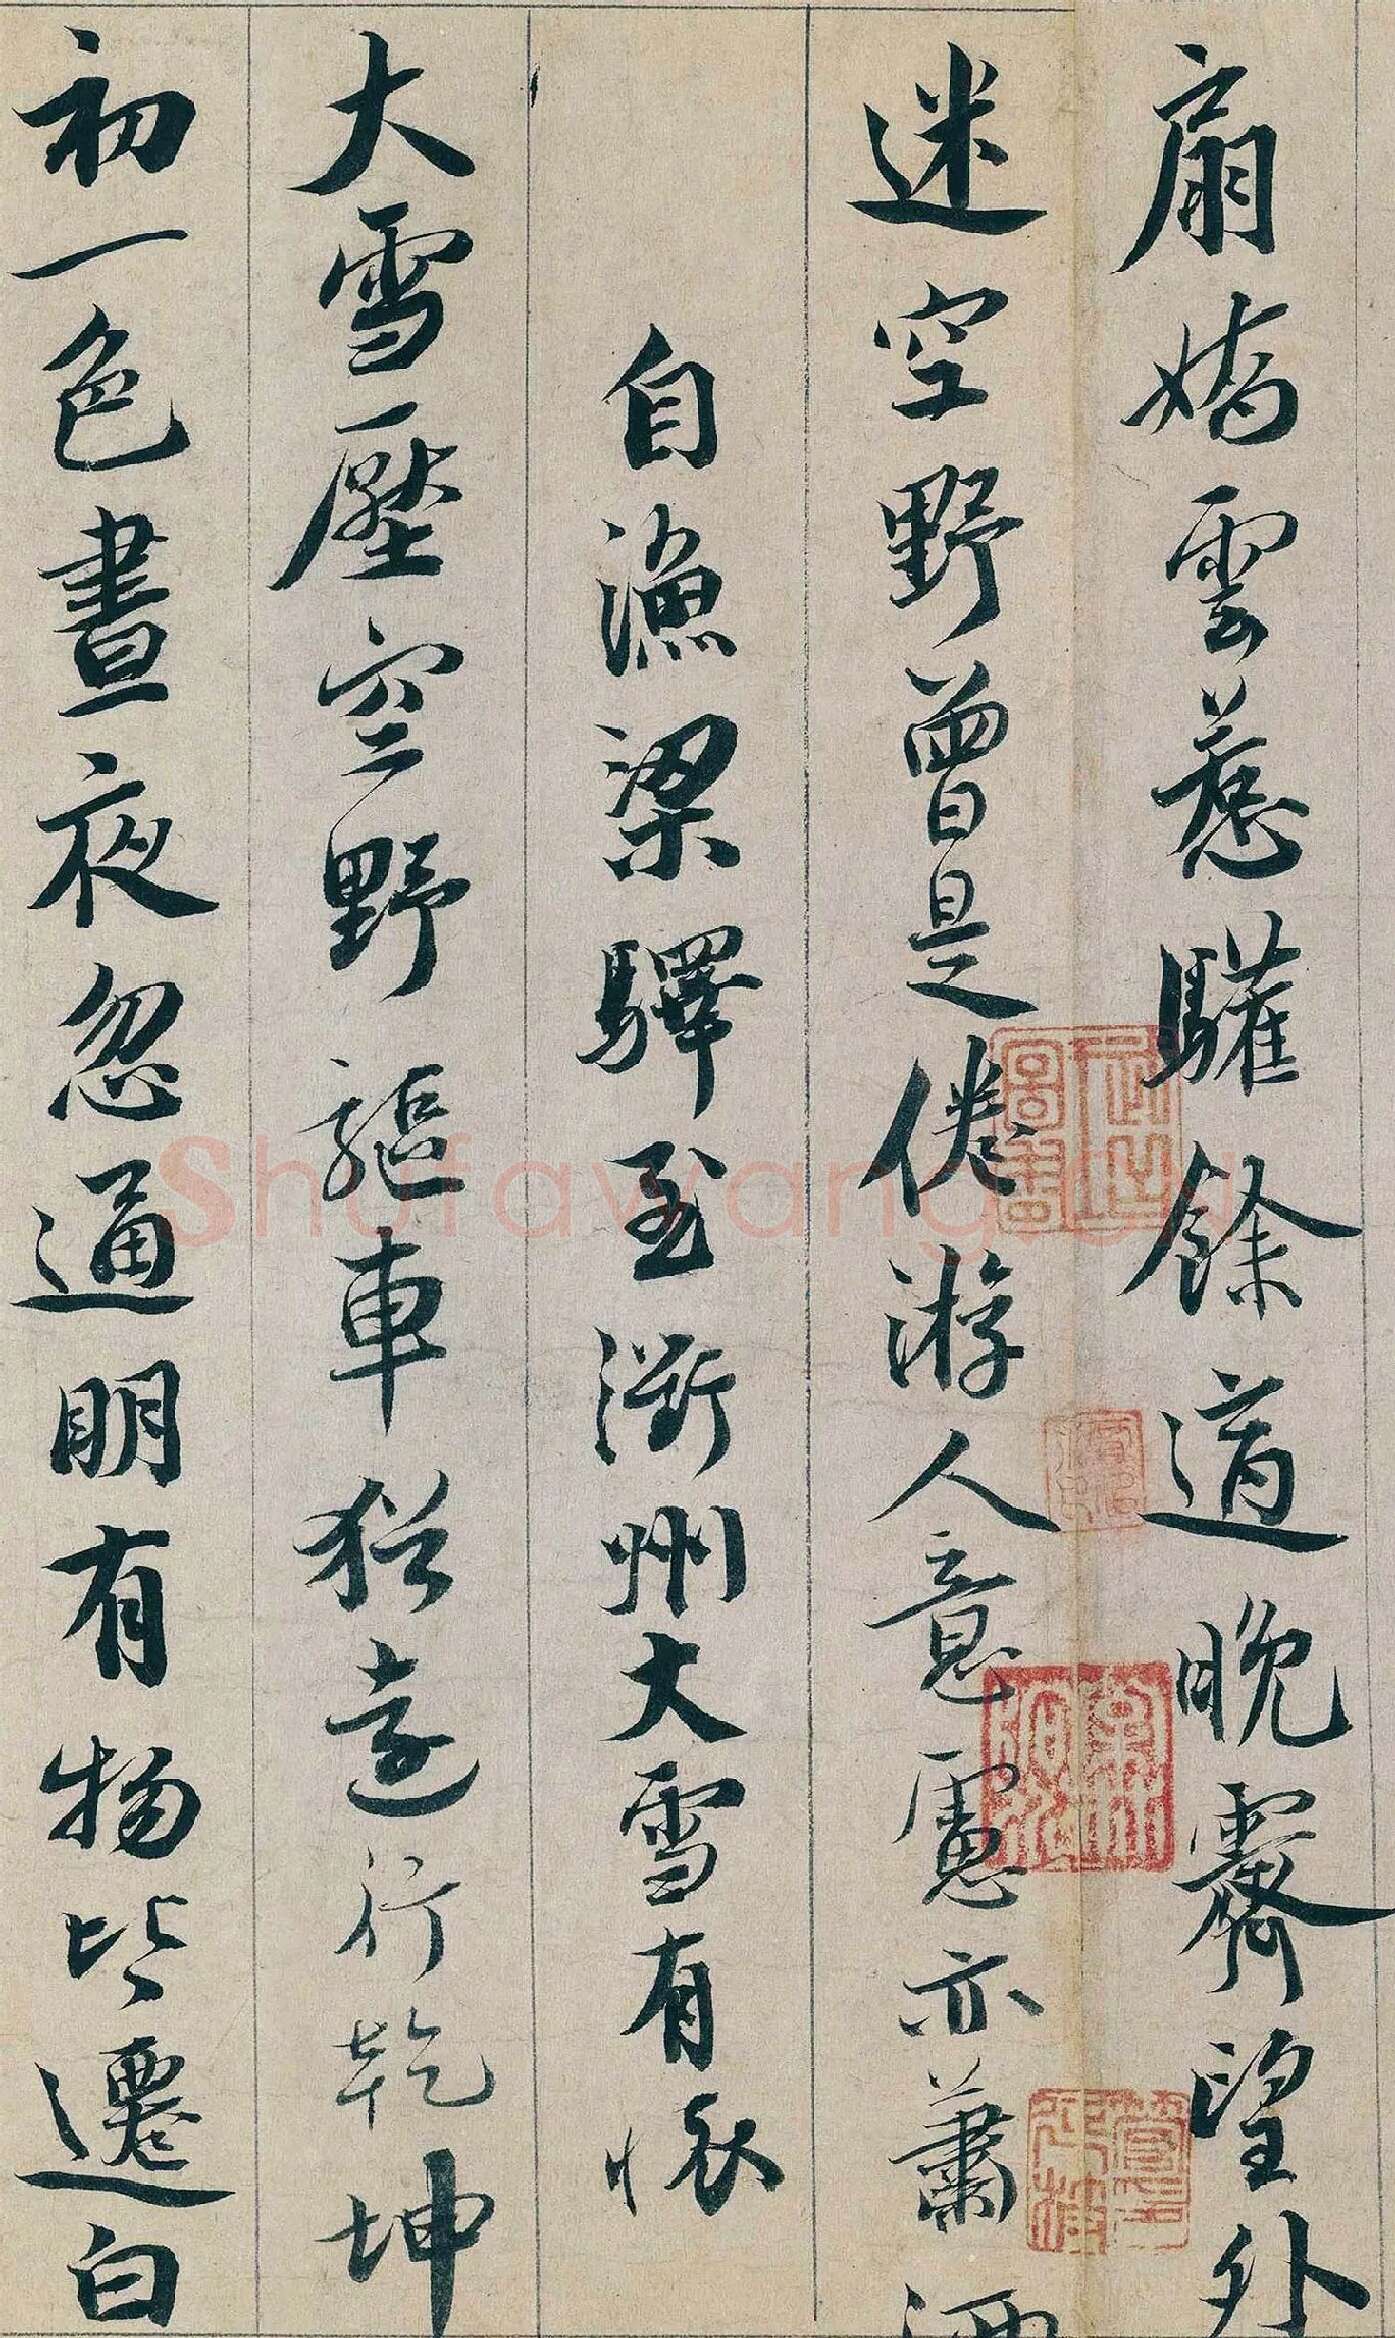 扇嬌雲惹驩餘適晚霽望外
迷空野曾是倦游人意慮亦蕭洒
自漁梁驛至衢州大雪有懷
大雪壓空野驅車猶遠行乾坤
初一色晝夜忽通明有物皆遷白
Shufawang.CN